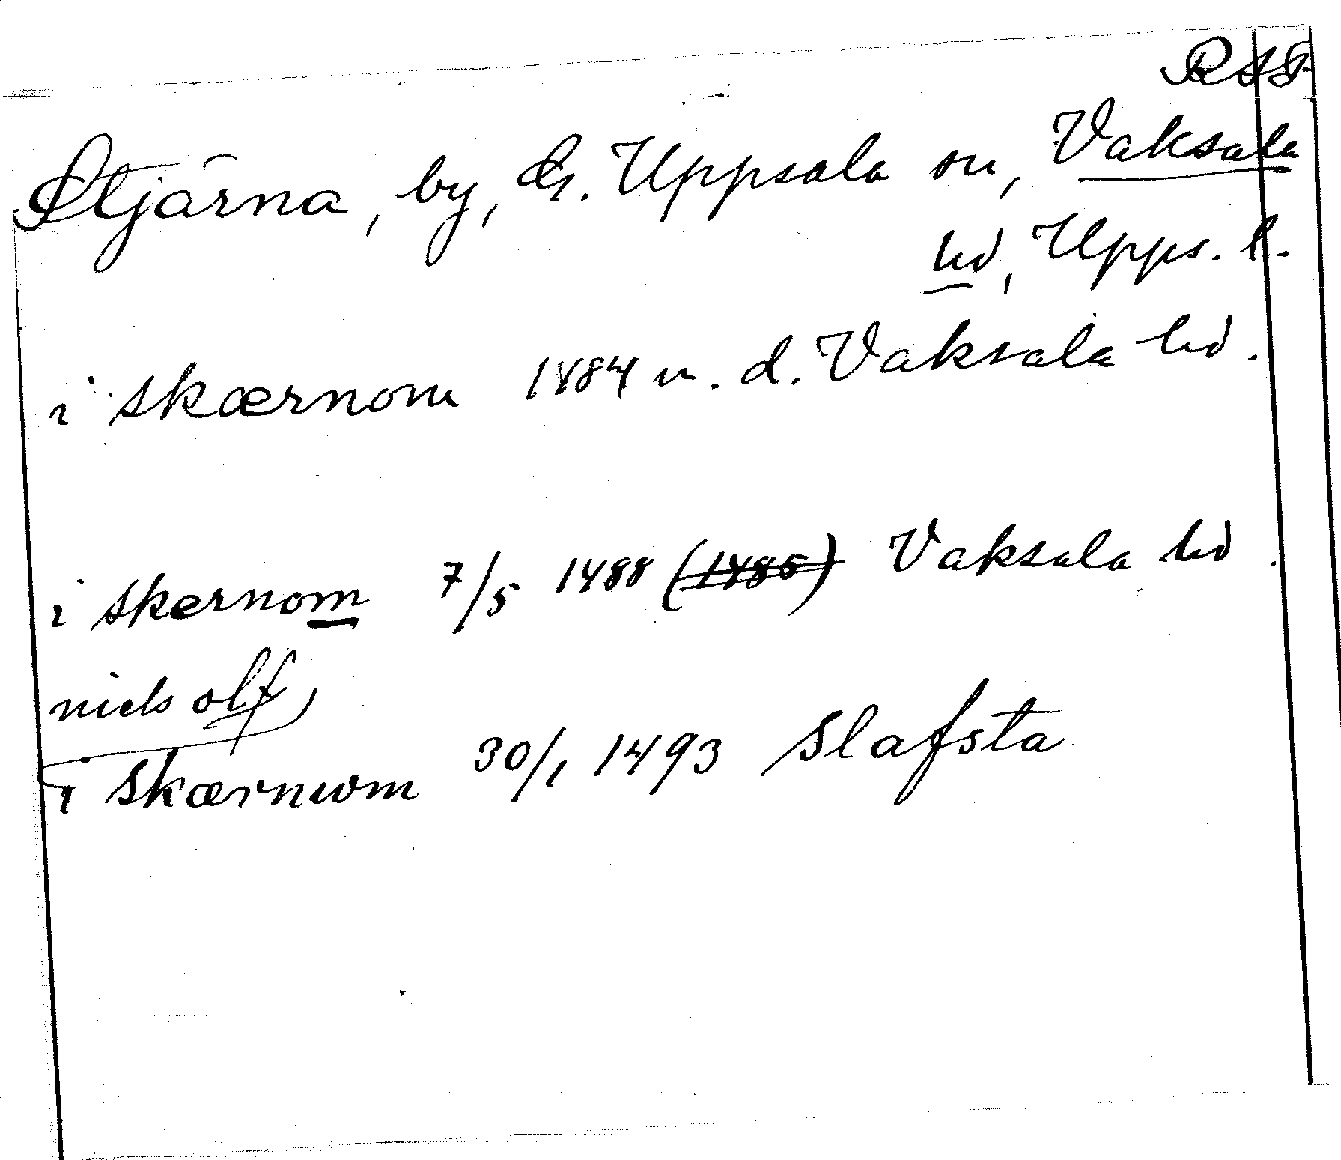 RAP
Stjärna, by, G. Uppsala sn, Vaksala
hd, Upps. l.
i skærnom 1484 u. d. Vaksala hd.
i skernom 7/5 1488 (1486) Vaksala hd
niels olf
i skærnwm 30/1 1493 Slafsta